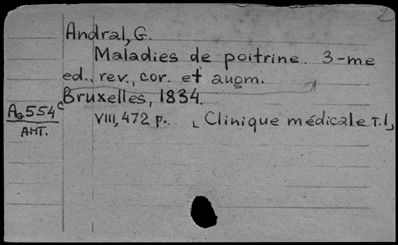 Andral, G.
Maladies de poitrine. 3-me
ed., rev., cor. et augm.
Bruxelles, 1834.
VIII, 472 p. [Clinique médicale T.I,]
AMT.